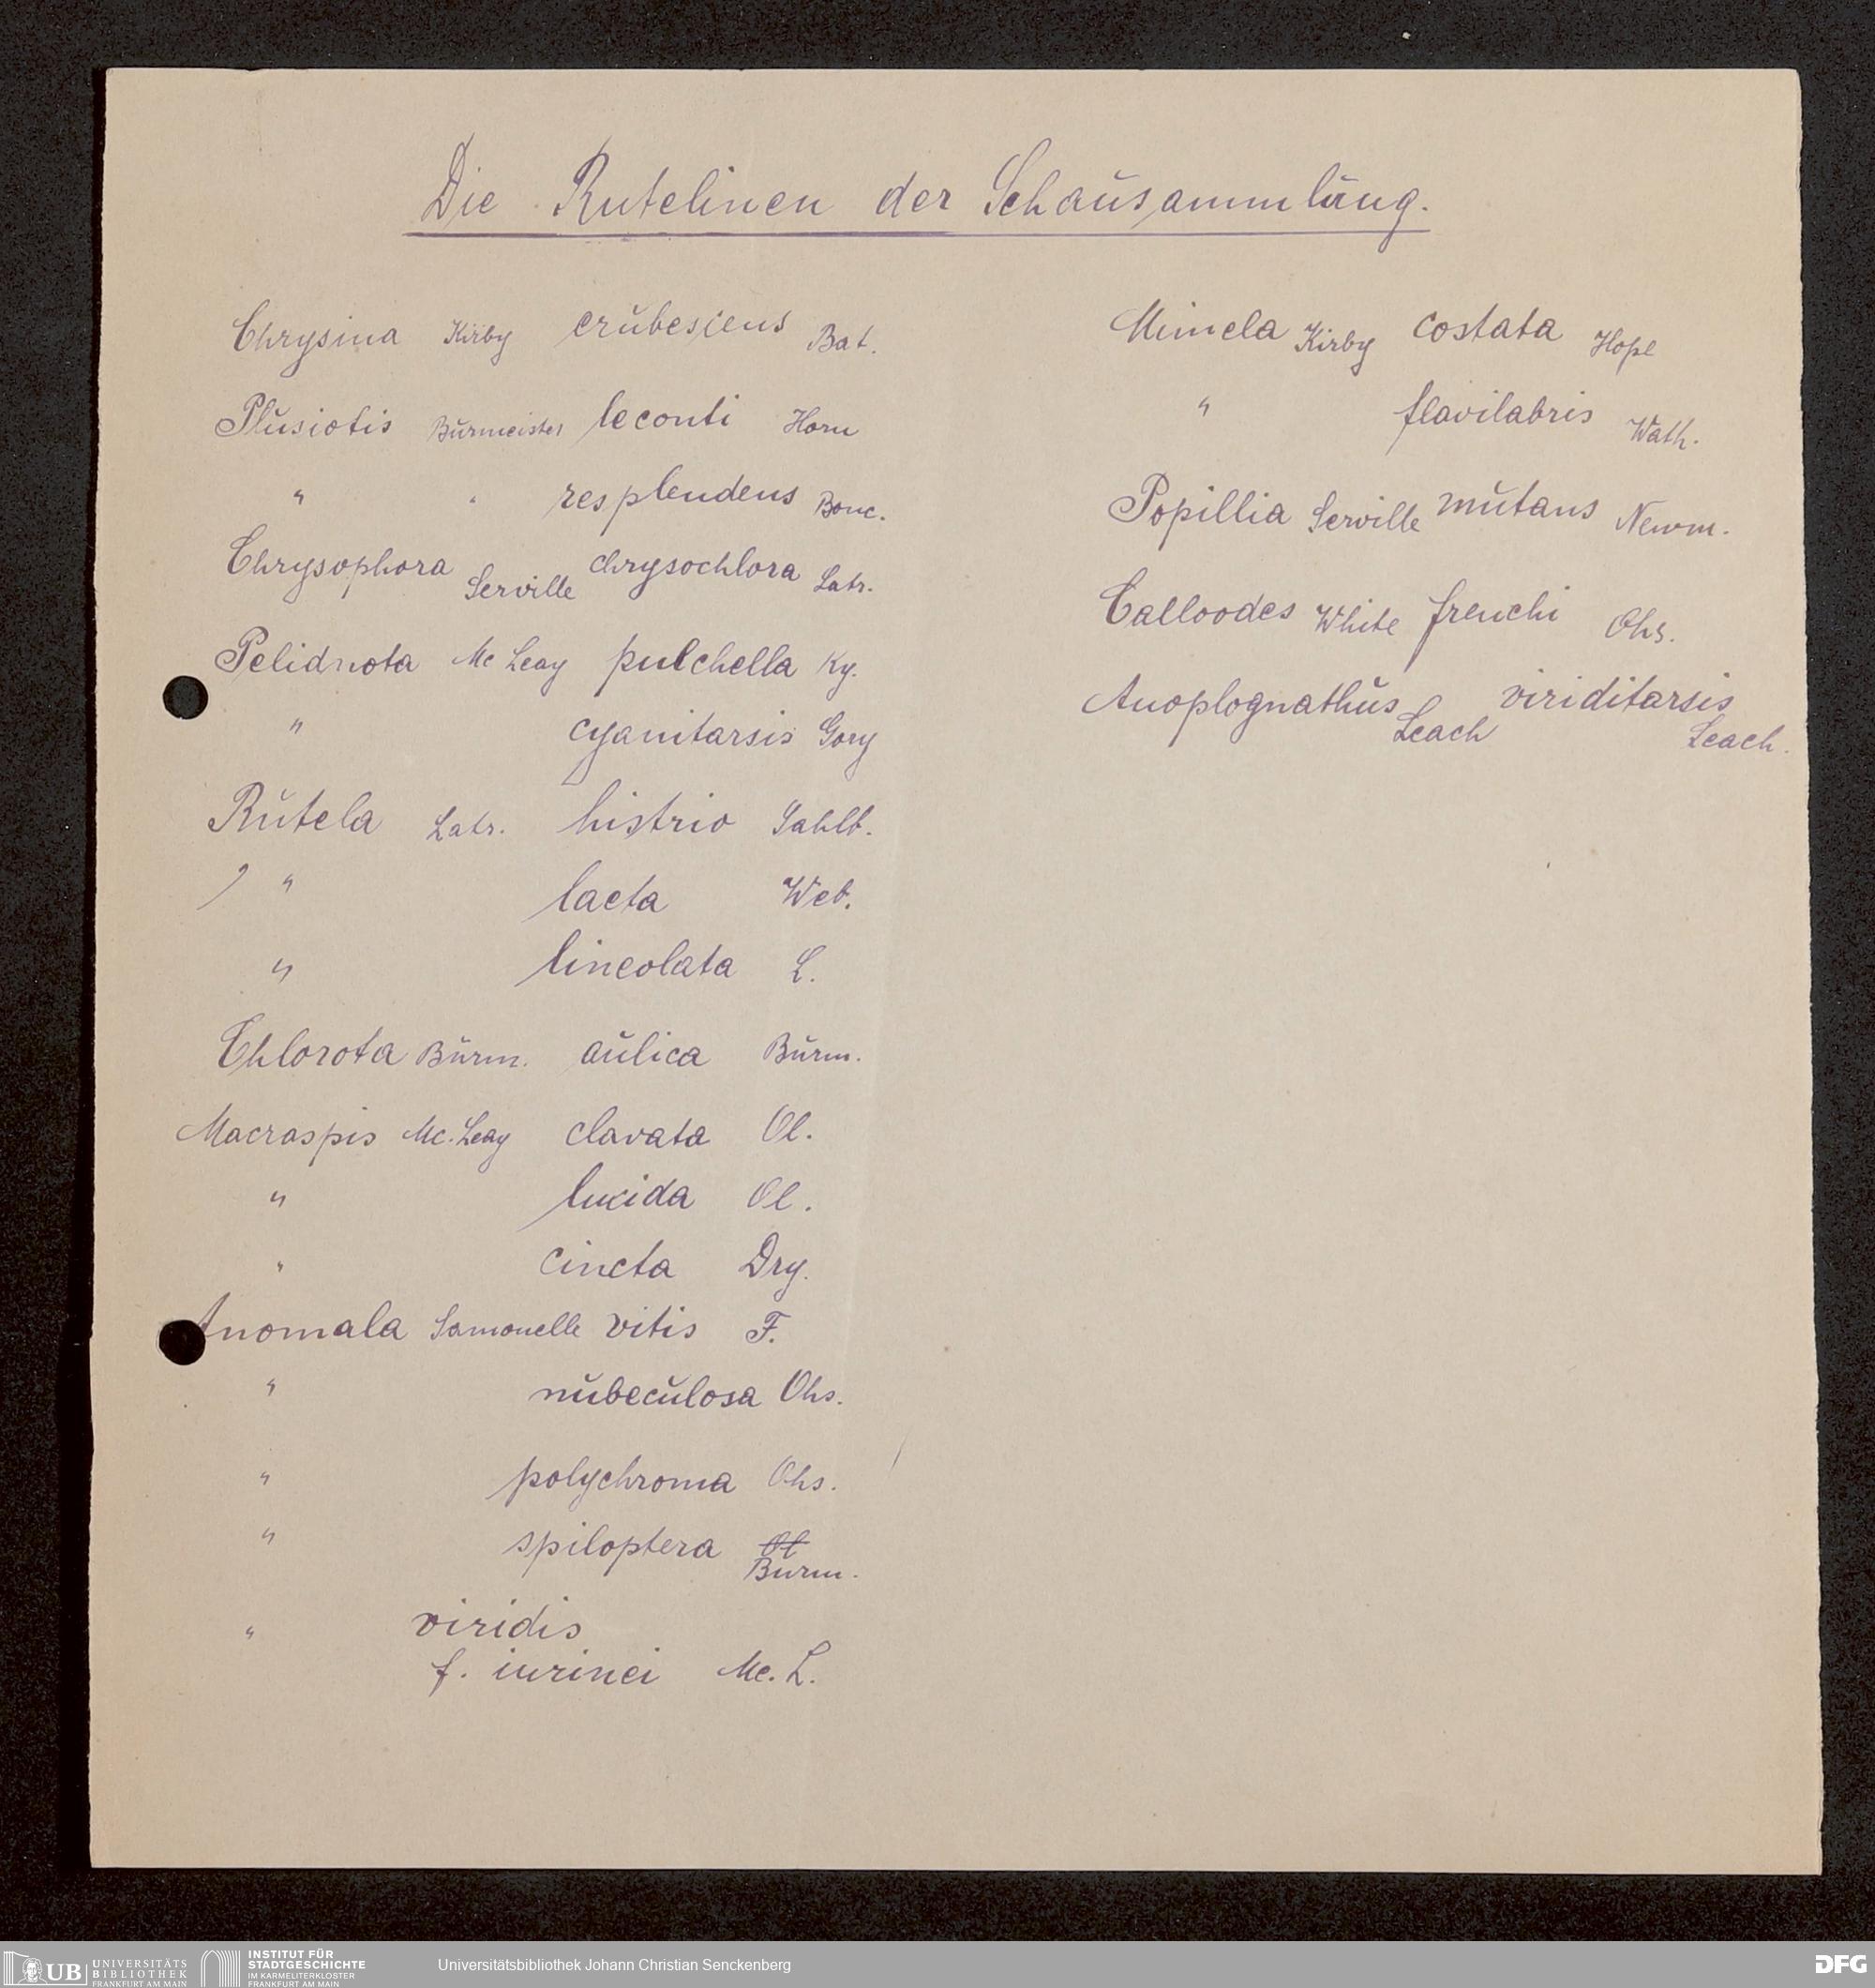 Die Rutelinen der Schausammlung.
Chrysina Kirby erubescens Bat.
Plusiotis Burmeister leconti Horn
" " resplendens Bouc.
Chrysophora Serville chrysochlora Latr.
Pelidnota Mc Leay pulchella Ky.
" cyanitarsis Gory
Rutela Latr. histrio Sahlb.
" laeta Web.
" lineolata L.
Chlorota Burm. aulica Burm.
Macraspis Mc. Leay clavata Ol.
" lucida Ol.
" cincta Dry.
Anomala Samouelle vitis F.
" nubeculosa Ohs.
" polychroma Ohs.
" spiloptera Ol
Burm.
" viridis
f. iurinei Mc. L.
Mimela Kirby costata Hope
" flavilabris Wath.
Popillia Serville mutans Newm.
Calloodes White frenchi Ohs.
Anoplognathus Leach viriditarsis
Leach.
UB UNIVERSITÄTS
BIBLIOTHEK
FRANKFURT AM MAIN
INSTITUT FÜR
STADTGESCHICHTE
IM KARMELITERKLOSTER
FRANKFURT AM MAIN
Universitätsbibliothek Johann Christian Senckenberg
DFG